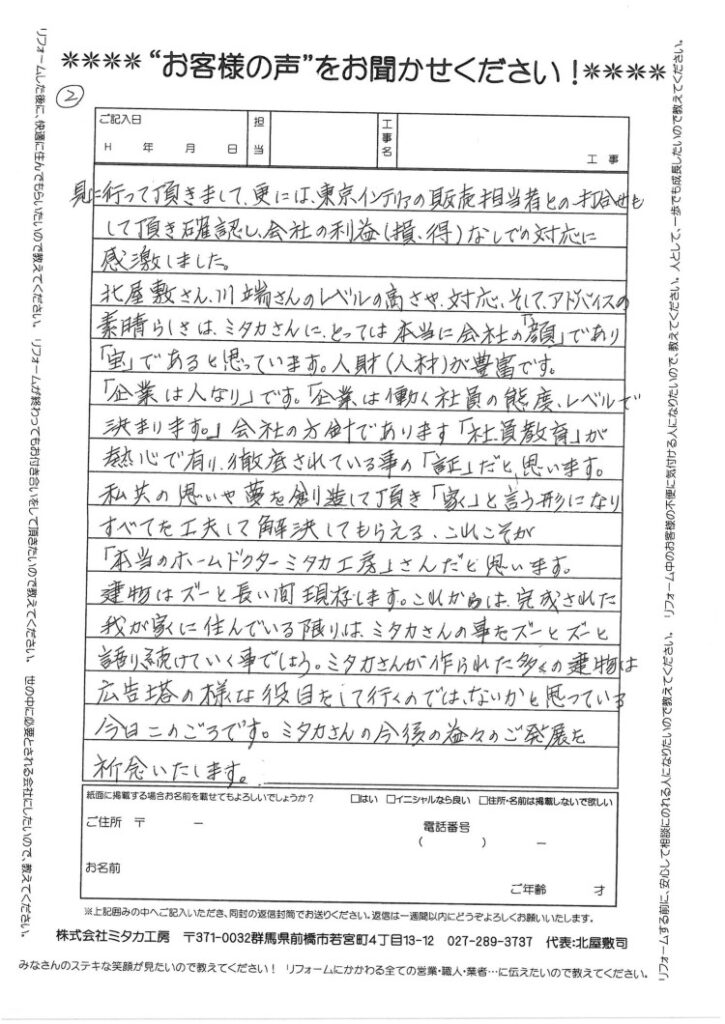 ✳✳✳✳ “お客様の声”をお聞かせください！✳✳✳✳
②
ご記入日
H 年 月 日
担当
工事名
工事
見に行って頂きまして、更には、東京インテリアの販売担当者との打合せも
して頂き確認し、会社の利益(損、得)なしでの対応に
感激しました。
北屋敷さん、川端さんのレベルの高さや、対応、そして、アドバイスの
素晴らしさは、ミタカさんに、とっては本当に会社の「顔」であり
「宝」であると思っています。人財(人材)が豊富です。
「企業は人なり」です。「企業は働く社員の態度、レベルで
決まります。」会社の方針であります「社員教育」が
熱心で有り、徹底されている事の「証」だと、思います。
私共の思いや夢を創造して頂き「家」と言う形になり
すべてを工夫して解決してもらえる、これこそが
「本当のホームドクターミタカ工房」さんだと思います。
建物はズーと長い間現存します。これからは、完成された
我が家に住んでいる限りは、ミタカさんの事をズーとズーと
誇り続けていく事でしょう。ミタカさんが作られた多くの建物は
広告塔の様な役目をして行くのでは、ないかと思っている
今日このごろです。ミタカさんの今後の益々のご発展を
祈念いたします。
紙面に掲載する場合お名前を載せてもよろしいでしょうか？ □はい □イニシャルなら良い □住所・名前は掲載しないで欲しい
ご住所 〒 －
電話番号
( ) －
お名前
ご年齢 才
※上記囲みの中へご記入いただき、同封の返信封筒でお送りください。返信は一週間以内にどうぞよろしくお願いいたします。
株式会社ミタカ工房 〒371-0032群馬県前橋市若宮町4丁目13-12 027-289-3737 代表:北屋敷司
みなさんのステキな笑顔が見たいので教えてください！ リフォームにかかわる全ての営業・職人・業者…に伝えたいので教えてください。
リフォームする前に、安心して相談にのれる人になりたいので教えてください。 リフォーム中のお客様の不便に気付ける人になりたいので、教えてください。 人として、一歩でも成長したいので教えてください。
リフォームした後に、快適に住んでもらいたいので教えてください。 リフォームが終わってもお付き合いをして頂きたいので教えてください。 世の中に必要とされる会社にしたいので、教えてください。